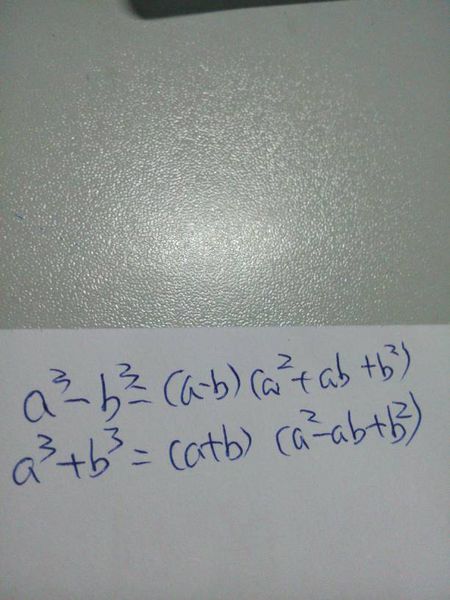 a³-b³=(a-b)(a²+ab+b²)
a³+b³=(a+b)(a²-ab+b²)